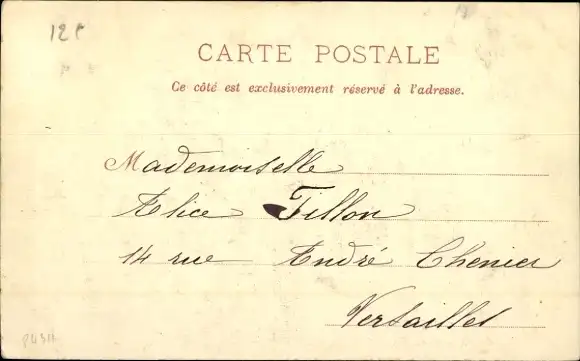 12 f
CARTE POSTALE
Ce côté est exclusivement réservé à l'adresse.
Mademoiselle
Alice Fillon
14 rue André Chenier
Versailles